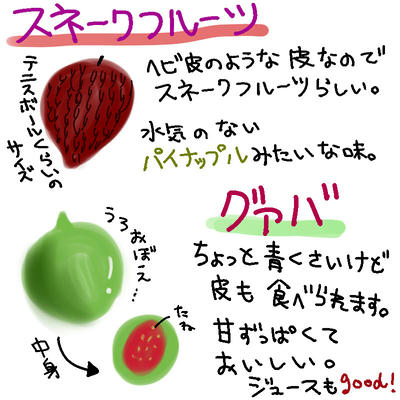 スネークフルーツ
テニスボールくらいの
サイズ
ヘビ皮のような皮なので
スネークフルーツらしい。
水気のない
パイナップルみたいな味。
グァバ
うろおぼえ…
たね
中身
ちょっと青くさいけど
皮も食べられます。
甘ずっぱくて
おいしい。
ジュースもgood!